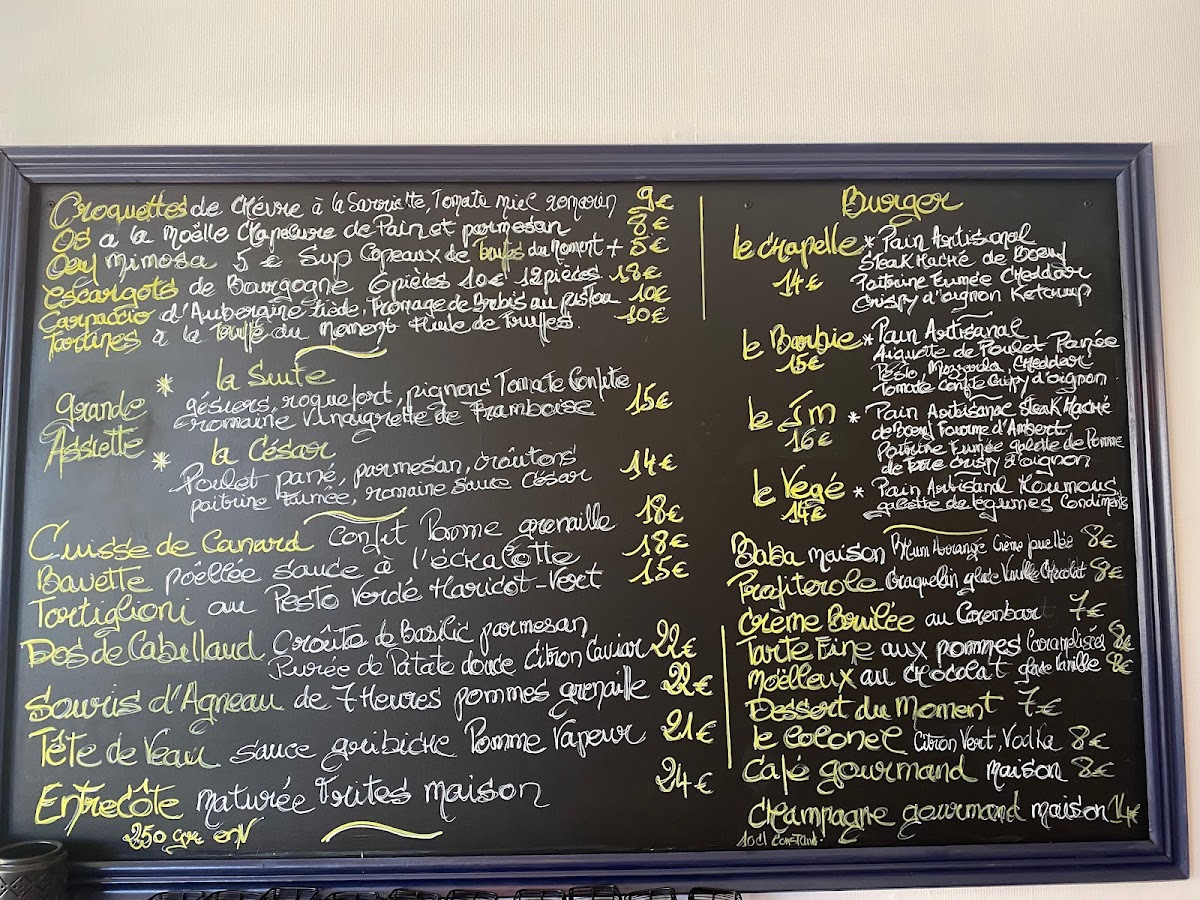 Croquettes de chèvre à la Sarriette, Tomate miel romarin 9€
Os à la Moëlle chapelure de Pain et parmesan 8€
Oeuf mimosa 5€ Sup Copeaux de Truffes du Moment + 5€
escargots de Bourgogne 6 pièces 10€ 12 pièces 18€
Carpaccio d'Aubergine tiède, Fromage de Brebis au pistou 10€
Tartines à la Truffe du Moment Huile de Truffes. 10€
Grande Assiette
* la Suite
gésiers, roquefort, pignons Tomate Confite
romaine Vinaigrette de Framboise 15€
* la César
Poulet pané, parmesan, croûtons
poitrine Fumée, romaine sauce César 14€
Cuisse de Canard Confit Pomme grenaille 18€
Bavette poëllée sauce à l'échalotte 18€
Tortiglioni au Pesto Verde Haricot-Vert 15€
Dos de Cabillaud Croûte de Basilic parmesan
Purée de Patate douce Citron Caviar 22€
Souris d'Agneau de 7 Heures pommes grenaille 22€
Tête de Veau sauce gribiche Pomme Vapeur 21€
Entrecôte maturée Frites maison 24€
250 gr env
Burger
le chapelle * Pain Artisanal
Steak Haché de Boeuf
14€ Poitrine Fumée Cheddar
Crispy d'oignon Ketchup
le Barbie * Pain Artisanal
15€ Aiguillette de Poulet Panée
Pesto, Cheddar
Tomate Confite Crispy d'oignon
le * Pain Artisanal Steak Haché
16€ de Boeuf Fourme d'Ambert
Poitrine Fumée galette de Pomme
de terre crispy d'oignon
le Vegé * Pain Artisanal Houmous,
14€ galette de légumes Condiments
Baba maison Rhum Crème 8€
Profiterole Craquelin glace Vanille Chocolat 8€
Crème Brulée au Carambar 7€
Tarte Fine aux pommes Caramélisées 8€
Moëlleux au chocolat glace Vanille 8€
Dessert du Moment 7€
le Colonel Citron Vert, Vodka 8€
Café gourmand maison 8€
Champagne gourmand maison 14€
10cl